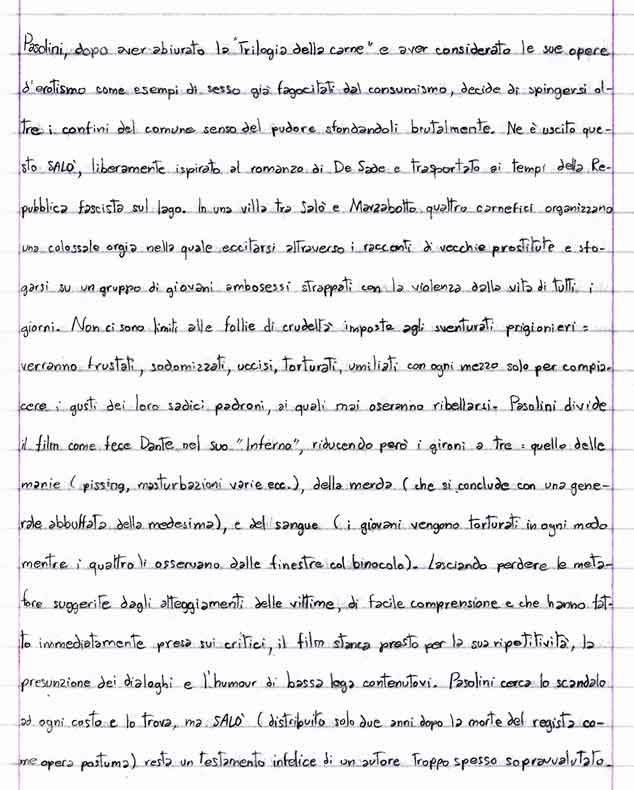 Pasolini, dopo aver abiurato la "Trilogia della carne" e aver considerato le sue opere
d'erotismo come esempi di sesso già fagocitati dal consumismo, decide di spingersi ol-
tre i confini del comune senso del pudore sfondandoli brutalmente. Ne è uscito que-
sto SALO', liberamente ispirato al romanzo di De Sade e trasportato ai tempi della Re-
pubblica fascista sul lago. In una villa tra Salò e Marzabotto quattro carnefici organizzano
una colossale orgia nella quale eccitarsi attraverso i racconti di vecchie prostitute e sfo-
garsi su un gruppo di giovani ambosessi strappati con la violenza dalla vita di tutti i
giorni. Non ci sono limiti alle follie di crudeltà imposte agli sventurati prigionieri:
verranno frustati, sodomizzati, uccisi, torturati, umiliati con ogni mezzo solo per compia-
cere i gusti dei loro sadici padroni, ai quali mai oseranno ribellarsi. Pasolini divide
il film come fece Dante nel suo "Inferno", riducendo però i gironi a tre: quello delle
manie (pissing, masturbazioni varie ecc.), della merda (che si conclude con una gene-
rale abbuffata della medesima), e del sangue (i giovani vengono torturati in ogni modo
mentre i quattro li osservano dalle finestre col binocolo). Lasciando perdere le meta-
fore suggerite dagli atteggiamenti delle vittime, di facile comprensione e che hanno fat-
to immediatamente presa sui critici, il film stanca presto per la sua ripetitività, la
presunzione dei dialoghi e l'humour di bassa lega contenutovi. Pasolini cerca lo scandalo
ad ogni costo e lo trova, ma SALO' (distribuito solo due anni dopo la morte del regista co-
me opera postuma) resta un testamento infelice di un autore troppo spesso sopravvalutato.